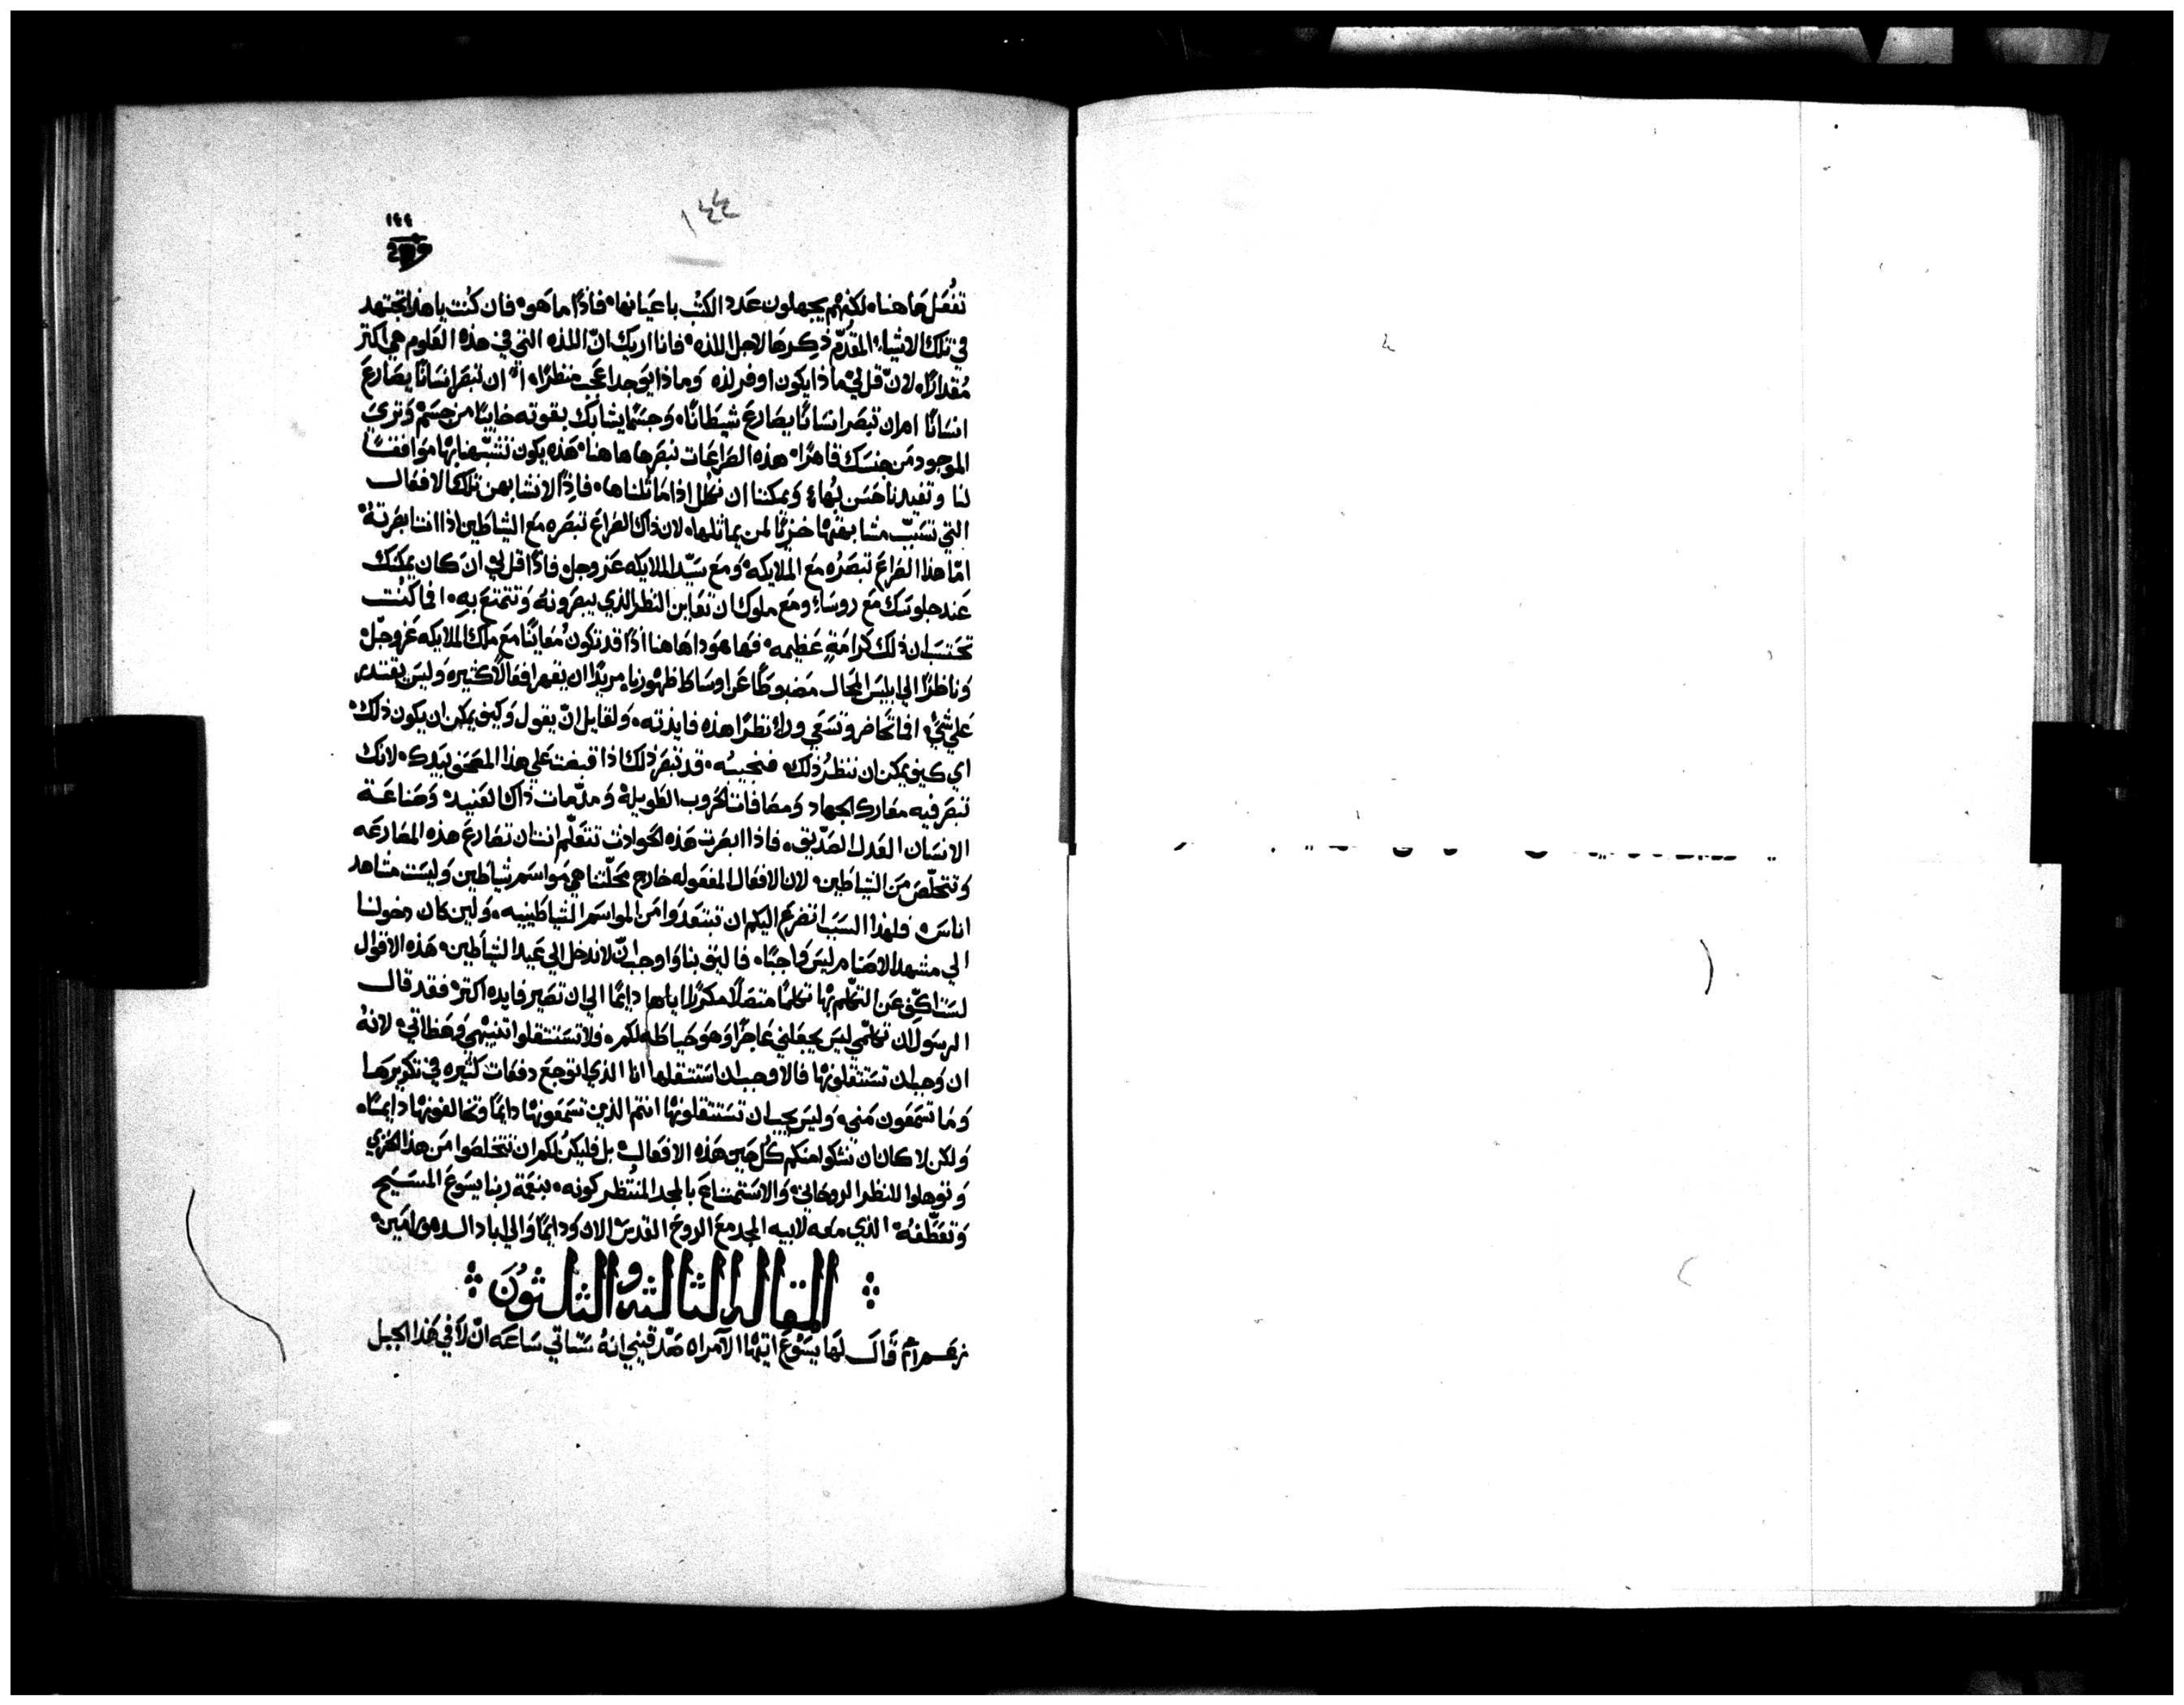 ١٤٤
١٤٤
تفعل هاهنا، لكنهم يجهلون عدد الكتب باعيانها، فاذًا ما هو، فان كنت يا هذا تجتهد
في تلك الاشياء المقدم ذكرها لاجل اللذه، فانا اريك انّ اللذه التي في هذه العلوم هي اكثر
مقدارًا، لان قل لي ماذا يكون اوفر لذه وماذا يوجد اعجب منظرًا، ان تبصر انسانًا يصارع
انسانًا ام ان تبصر انسانًا يصارع شيطانًا، وجسمًا يشابك بقوته خايبًا من جسم وترى
الموجود من جنسك قاهرًا، هذه الصراعات نبصرها هاهنا، هذه يكون تشبهنا بها موافقًا
لنا وتفيدنا حسن بهاء، ويمكننا ان نكلل اذا ماثلناها، فاذًا لا نتشابهن تلك الافعال
التي تسبب مشابهتها خزيًا لمن يماثلها، لان ذاك الصراع تبصره مع الشياطين اذا انت ابصرته
امّا هذا الصراع تبصره مع الملايكه، ومع سيّد الملايكه عز وجل، فاذًا قل لي ان كان يمكنك
عند جلوسك مع روساء ومع ملوك ان تعاين النظر الذي يبصرونه وتتمتع به، افما كنت
تحتسب ان ذلك كرامةٍ عظيمه، فها هوذا هاهنا اذًا قد تكون معاينًا مع ملك الملايكه عز وجلّ
وناظرًا الى ابليس المحال مضبوطًا عن اوساط ظهورنا، مريدًا ان يفعل افعالًا كثيره وليس يقتدر
على شيء، افما تحاضر وتسعي وراء نظرًا هذه فايدته، ولقايل انّ يقول وكيف يمكن ان يكون ذلك،
اي كيف يمكن ان ننظر ذلك، فنجيبه، قد تبصر ذلك اذا قبضت على هذا المصحف بيدك، لانك
تبصر فيه معارك الجهاد ومصافات الحروب الطويلة وملزمات ذاك العنيد، وصناعة
الانسان العدل الصدّيق، فاذا ابصرت هذه الحوادث تتعلم انت ان تصارع هذه المصارعه
وتتخلّص من الشياطين، لان الافعال المفعوله خارج محلّتنا هي مواسم شياطين وليست مشاهد
اناس، فلهذا السبب اتضرع اليكم ان تبتعدوا من المواسم الشياطينيه، ولين كان دخولنا
الى مشهد الاصنام ليس واجبًا، فاليق بنا واوجب انّ لا ندخل الى عيد الشياطين، هذه الاقوال
لست اكفّ عن التكلم بها تكلمًا متصلًا مكررًا اياها دايمًا الى ان تصير فايده اكثر، فقد قال
الرسول ان تكلمي ليس يجعلني عاجزًا وهو حياطه لكم، فلا تستثقلوا تنبيهي وعظاتي، لانه
ان وجب ان تستثقلونها فالاوجب ان استثقلها انا الذي اتوجع دفعات كثيره في تكريرها
وما تسمعون مني، وليس يجب ان تستثقلونها انتم الذين تسمعونها دايمًا وتخالفونها دايمًا،
ولكن لا كان ان نشكوا منكم كل حين هذه الافعال، بل فليكن لكم ان تتخلصوا من هذا الخزي
وتوهلوا للنظر الروحاني، والاستمتاع بالمجد المنتظر كونه، بنعمة ربنا يسوع المسيح
وتعطّفه، الذي معه لابيه المجد مع الروح القدس الان ودايمًا والى اباد الدهور امين،
المقاله الثالثه والثلثون
قال لها يسوع ايتها الامراه صدقيني انه ستاتي ساعه انّ لا في هذا الجبل